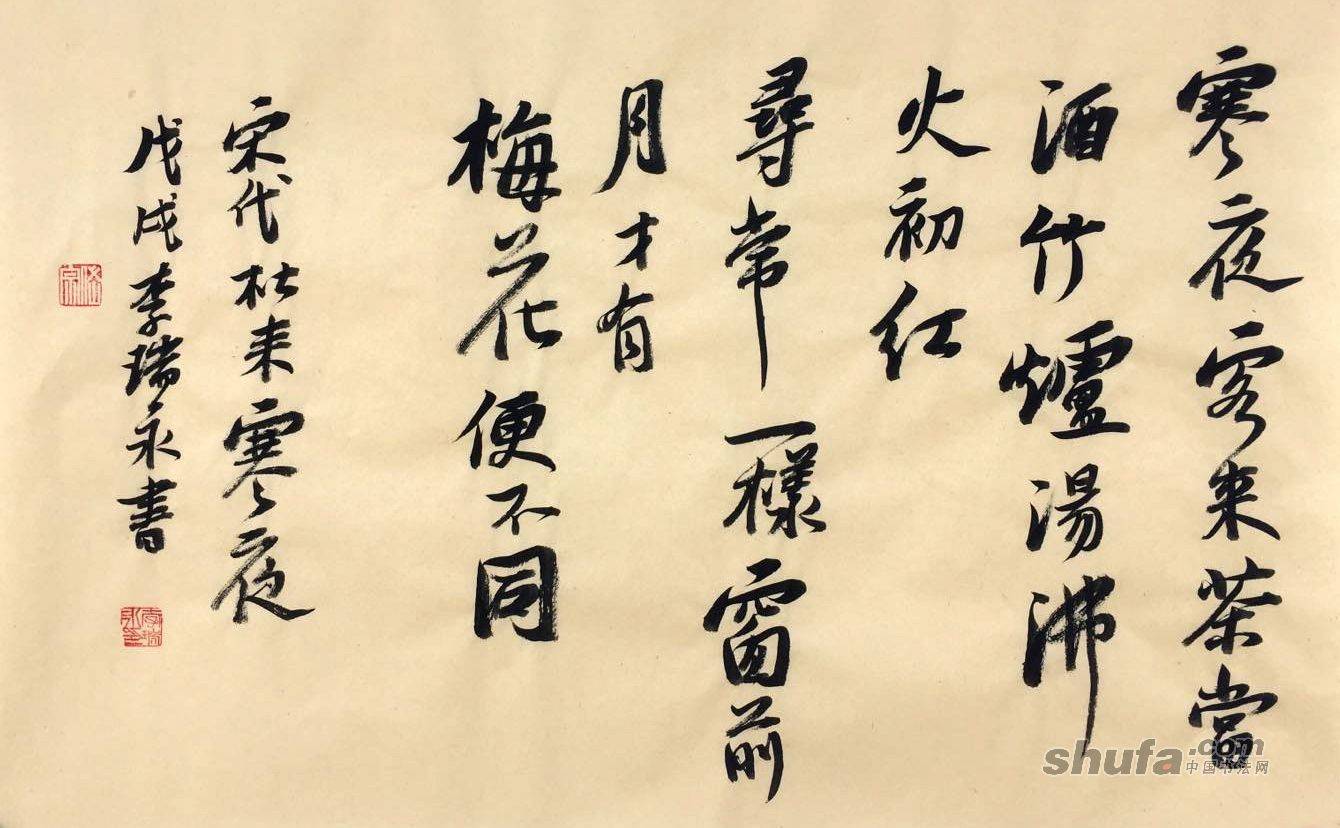 寒夜客来茶當
酒竹爐湯沸
火初红
尋常一樣窗前
月才有
梅花便不同
宋代杜耒寒夜
戊戌李瑞永書
李瑞永印
shufa.com
中国书法网